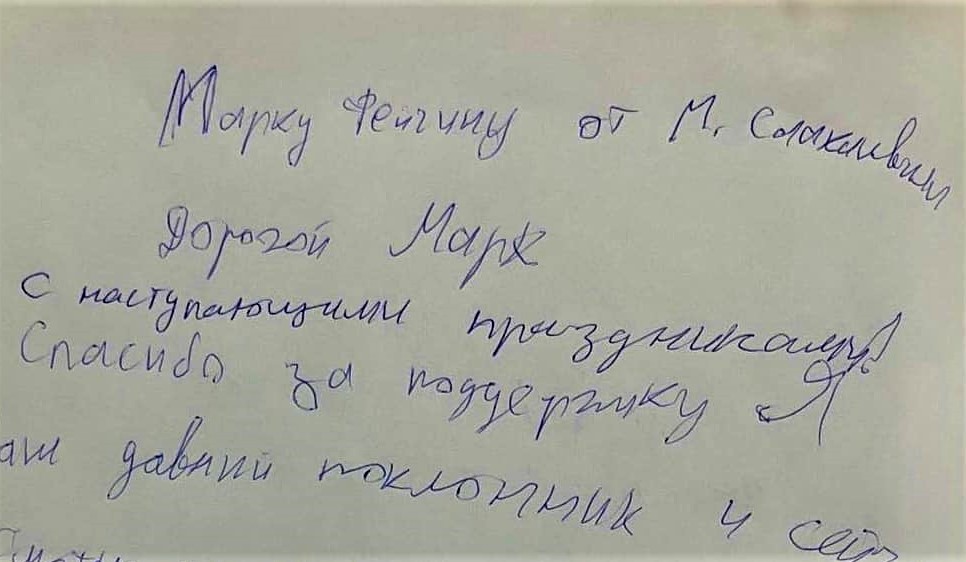 Марку Фейгину от М. Саакашвили
Дорогой Марк
С наступающими праздниками!
Спасибо за поддержку Я
давний поклонник и